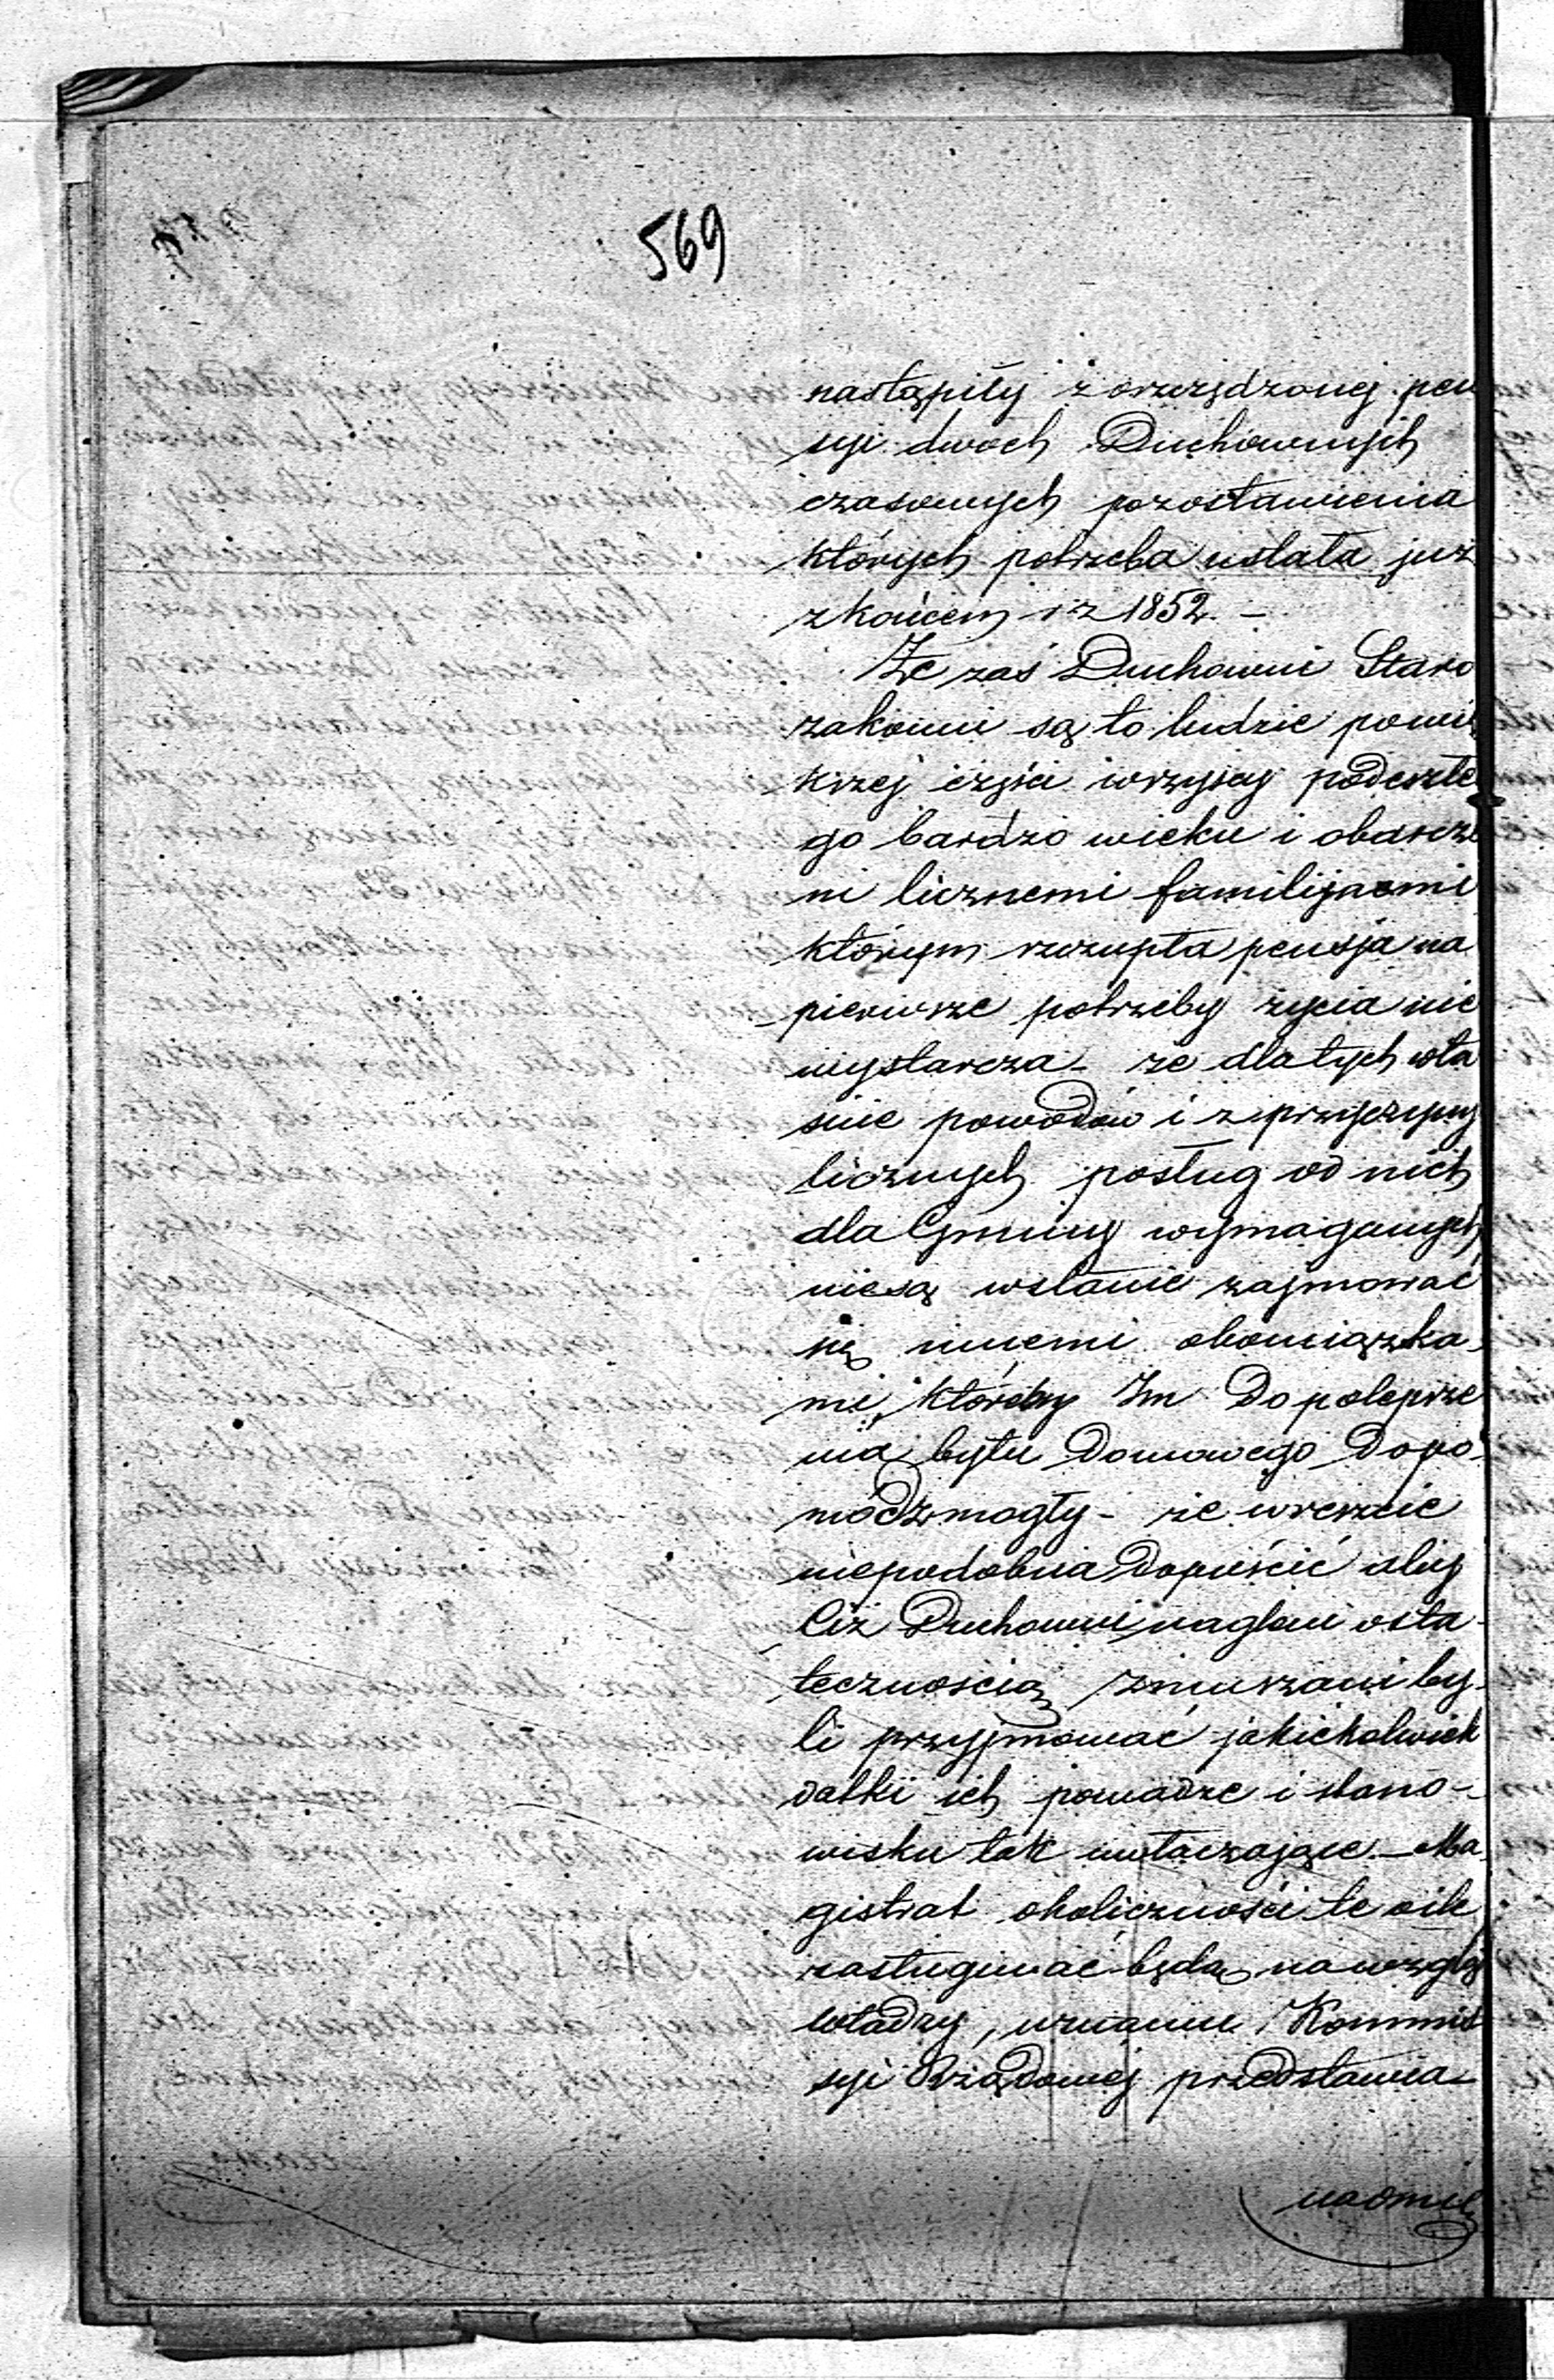 569
nastąpiły z oszczędzonej pen
syi dwóch Duchownych
czasowych pozostawienia
których potrzeba ustała już
z końcem r z 1852. –
Że zaś Duchowni Staro
zakonni są to ludzie powię
kszej części wszyscy podeszłe
go bardzo wieku i obarcze
ni licznemi familijami
którym szczupła pensja na
pierwsze potrzeby życia nie
wystarcza – że dla tych wła
śnie powodów i z przyczyny
licznych posług od nich
dla Gminy wymaganych
niesą wstanie zajmować
się innemi obowiązka
mi, któreby Im do polepsze
nia bytu domowego dopo
módz mogły – że wreszcie
niepodobna dopuścić aby
Ciż Duchowni nagleni osta
tecznością zmuszani by
li przyjmować jakiekolwiek
datki ich powadze i stano-
wisku tak uwłaczające. – Ma
gistrat okoliczności te o ile
zasługiwać będą na wzglę
władzy, uznaniu Kommis
syi Rządowej przedstawia
nadmie